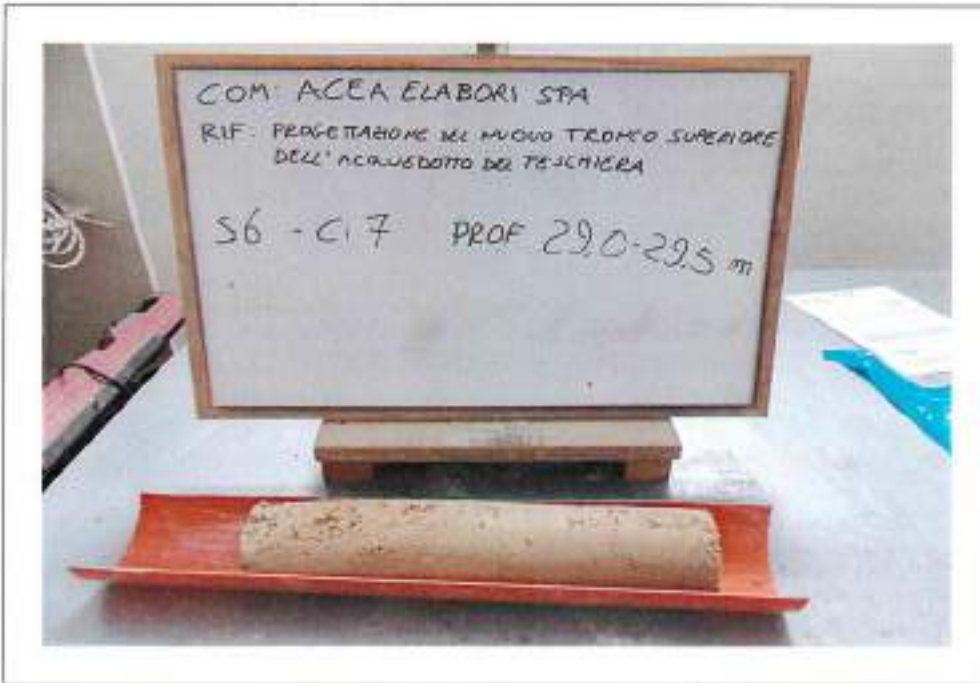 COM: ACEA ELABORI SPA
RIF: PROGETTAZIONE DEL NUOVO TRONCO SUPERIORE
DELL'ACQUEDOTTO DEL PESCHIERA
S6 - C.7 PROF 29.0-29.5 m